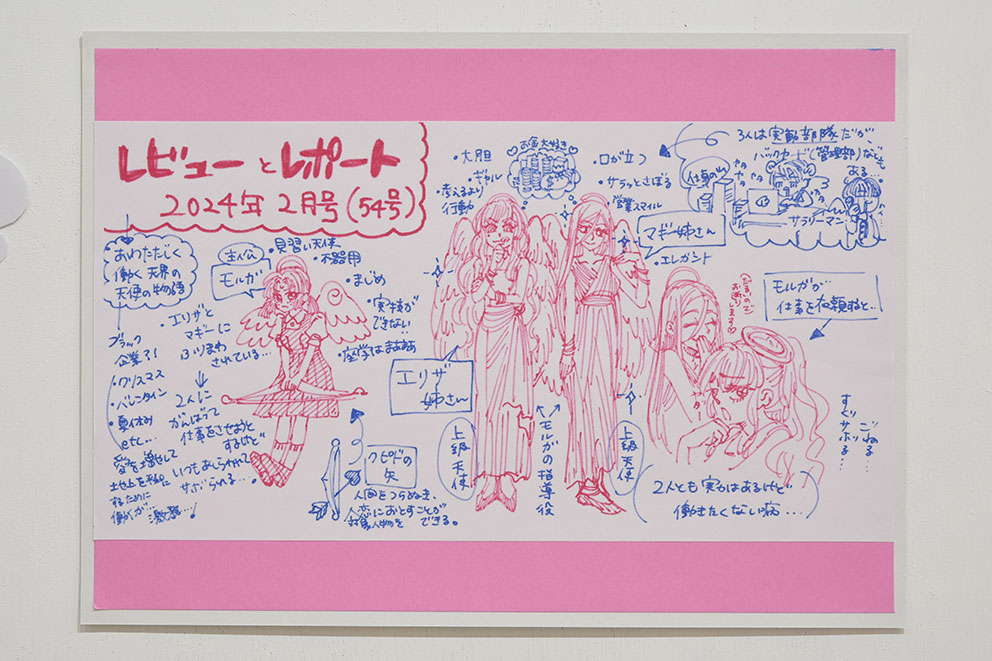 レビューとレポート
2024年2月号(54号)
あわただしく
働く天界の
天使の物語
主人公
モルガ
・見習い天使
・不器用
・まじめ
・実技が
できない
・座学はまあまあ
・エリザと
マギーに
ふりまわ
されている…
2人に
がんばって
仕事をさせようと
するけど
いつも
サボられる…。
ブラック
企業?!
・クリスマス
・バレンタイン
・夏休み
etc…
愛を増やして
地上を平和に
するために
働くが…
激務…!
クピドの
矢
人間をつらぬき、
人恋におとすことが
対象人物を
できる。
・大胆
・ギャル
・考えるより
行動
お金大好き
エリザ
姉さん
上級天使
モルガの指導役
上級天使
・口が立つ
・サラッとさぼる
営業スマイル
マギー姉さん
・エレガント
3人は実動部隊だが
バックヤード(管理部)なども
ある…
仕事の山
サラリーマン
モルガが
仕事を依頼すると…
だるいので
お断りします♡
ごねる…
すぐサボる…
2人とも実力はあるけど
働きたくない病...